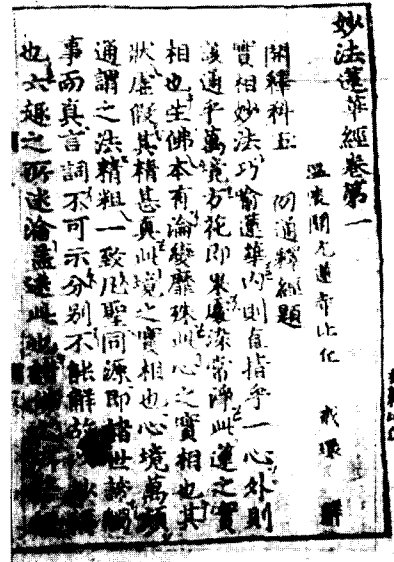 妙法蓮華經卷第一
溫陵開元蓮寺比丘 戒環 解
開釋科五 初通釋經題
實相妙法巧喻蓮華內則直指乎一心外則
該通乎萬境方花即果處染常淨此蓮之實
相也生佛本有淪變靡殊此心之實相也其
狀虛假其精甚真此境之實相也心境萬類
通謂之法精粗一致凡聖同源即諸世諦觸
事而真言詞不可示分別不能解故妙稱
也六趣之所迷淪蓋迷此也諸